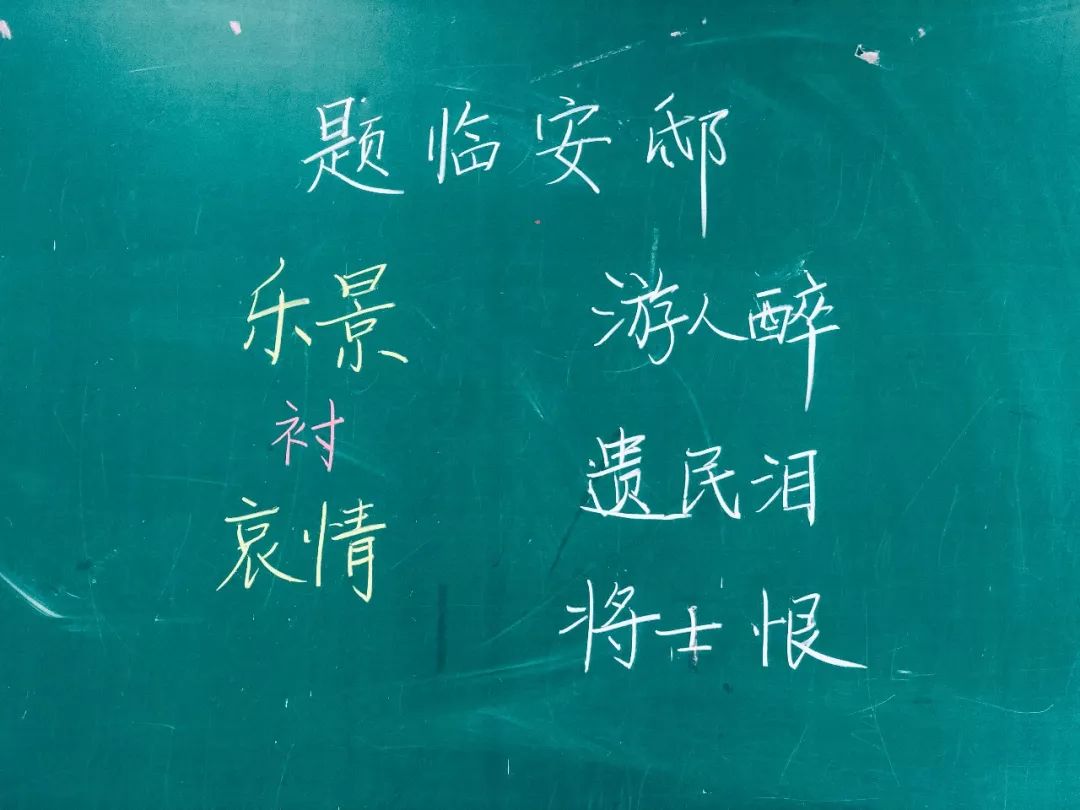 题临安邸
乐景
衬
哀情
游人醉
遗民泪
将士恨